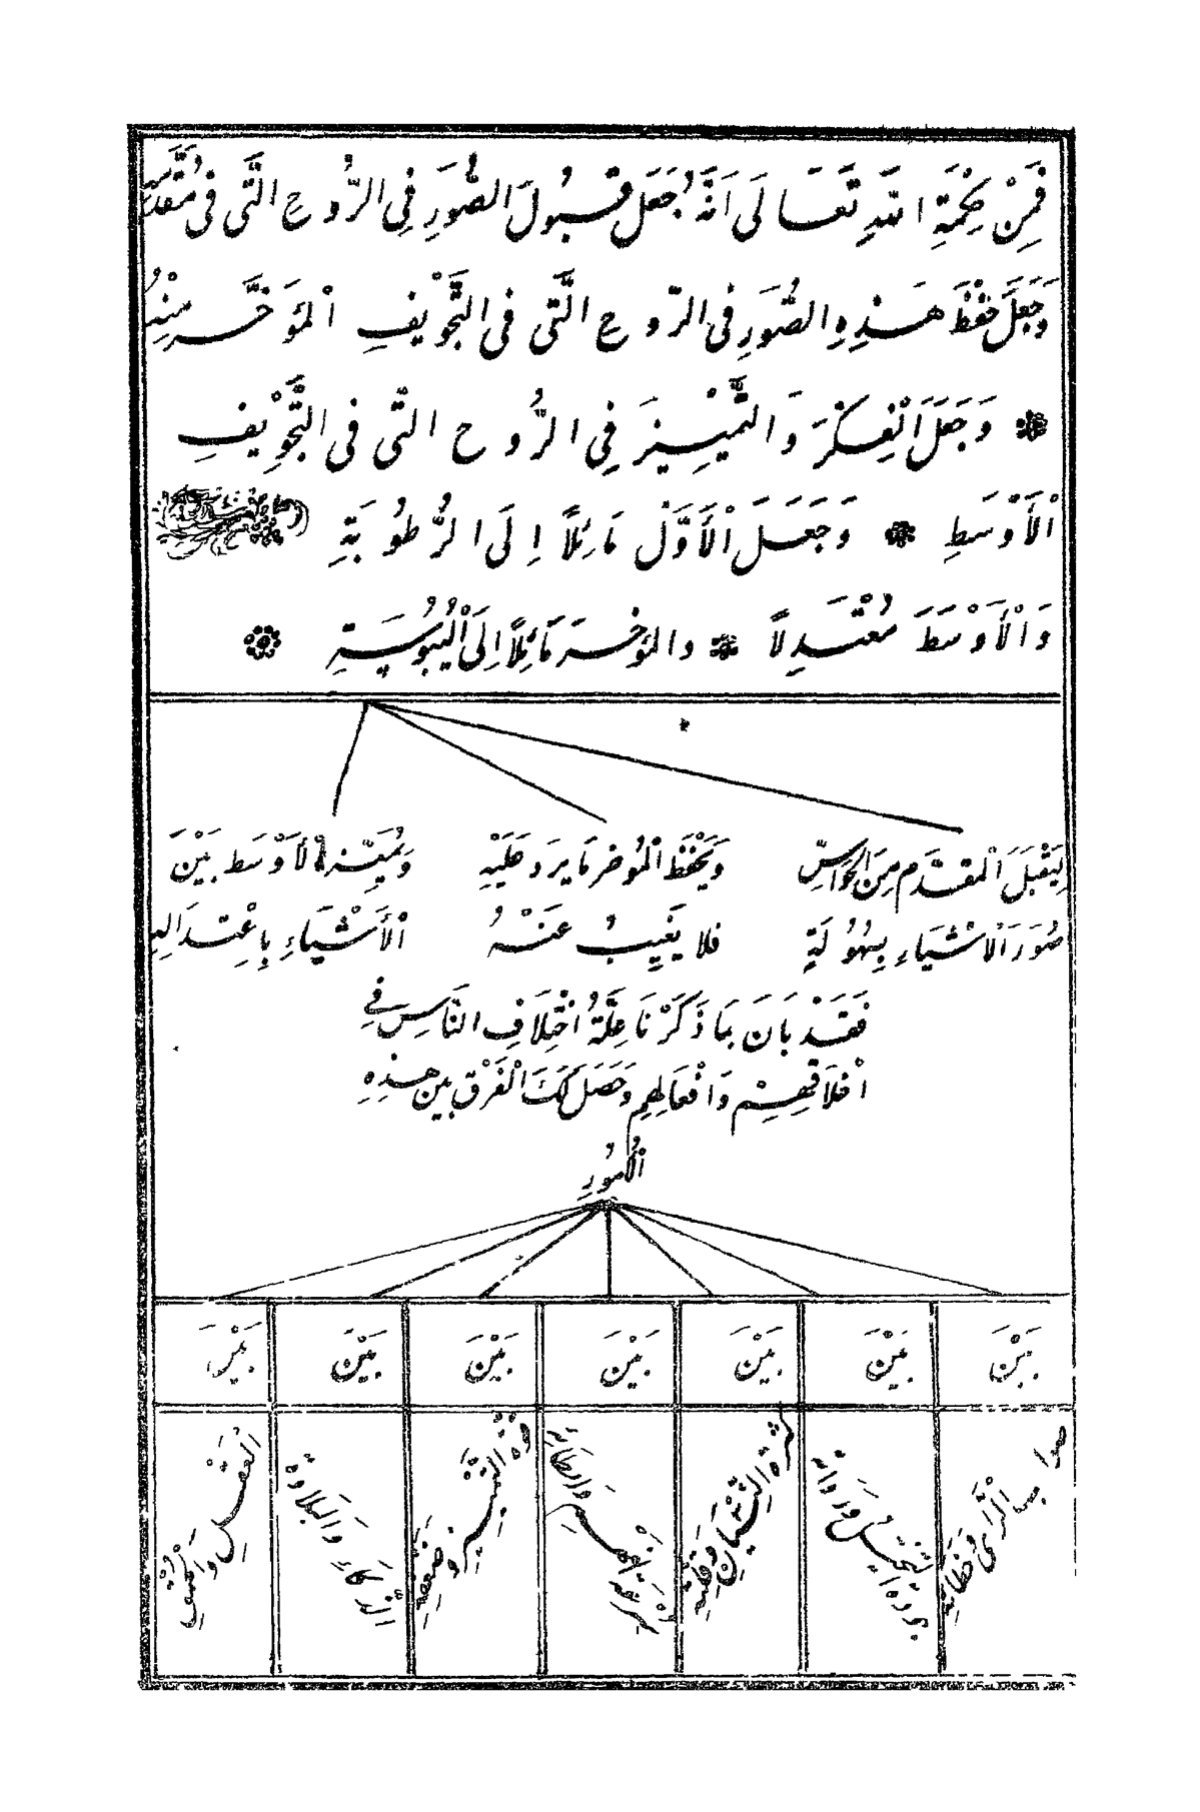 فَمِنْ حِكْمَةِ اللهِ تَعَالَى اَنَّهُ جَعَلَ قَبُولَ الصُّوَرِ فِى الرُّوحِ الَّتَى فى مُقَدَّمِ
وَجَعَلَ حِفْظَ هَذِهِ الصُّوَرِ فى الرّوحِ الَّتى فى التَّجْوْيْفِ اْلمُؤَخَّرِ مِنْهُ
وَجَعَلَ الْفِكْرَ وَالتَّمْيِيزَ فِى الرُّوحِ التَّى فى التَّجْوِيْفِ
اْلأَوْسَطِ وَجَعَلَ اْلأَوَّلَ مَائِلًا اِلَى الرُّطُوبَةِ
وَاْلأَوْسَطَ مُعْتَدِلاً والمؤخر مَائِلًا اِلَى اْليُبُوسَةِ
لِيَقْبَلَ الْمُقَدَّم مِنَ الْحَوَاسِّ
صُوَرَ الْاشْيَاءِ بِسُهُولَةٍ
وَيَحْفَظَ اْلمُؤخر مَا يرد عَلَيْهِ
فلا يَغِيبُ عَنْهُ
وَيُمَيِّز اْلاَوْسَط بَيْنَ
اْلأَشْيَاءِ بِاعْتِدَالِهِ
فَقَدْ بَانَ بِمَا ذَكَرْنَا عِلَّةُ اخْتِلَافِ النَّاسِ فِي
اَخْلَاقِهِمْ وَاَفْعَالِهِمِ وَحَصَلَ لَكَ الْفَرْق بين هذِهِ
اْلأُمُورِ
بَيْنَ بَيْنَ بَيْنَ بَيْنَ بَيْنَ بَيْنَ بَيْنَ
صواب الْرَّاى وَخَطَائِهِ
جودة التخيُّل وَرداته
كثرة النِّسْيَانِ وَقِلَّتِهِ
الْفهمِ وَابطَائه
قوة التَّمْيِيز وضَعْفِهِ
الذَّكَاءِ وَالْبَلَادَة
الْعَقْلِ وَالْحُمْقِ